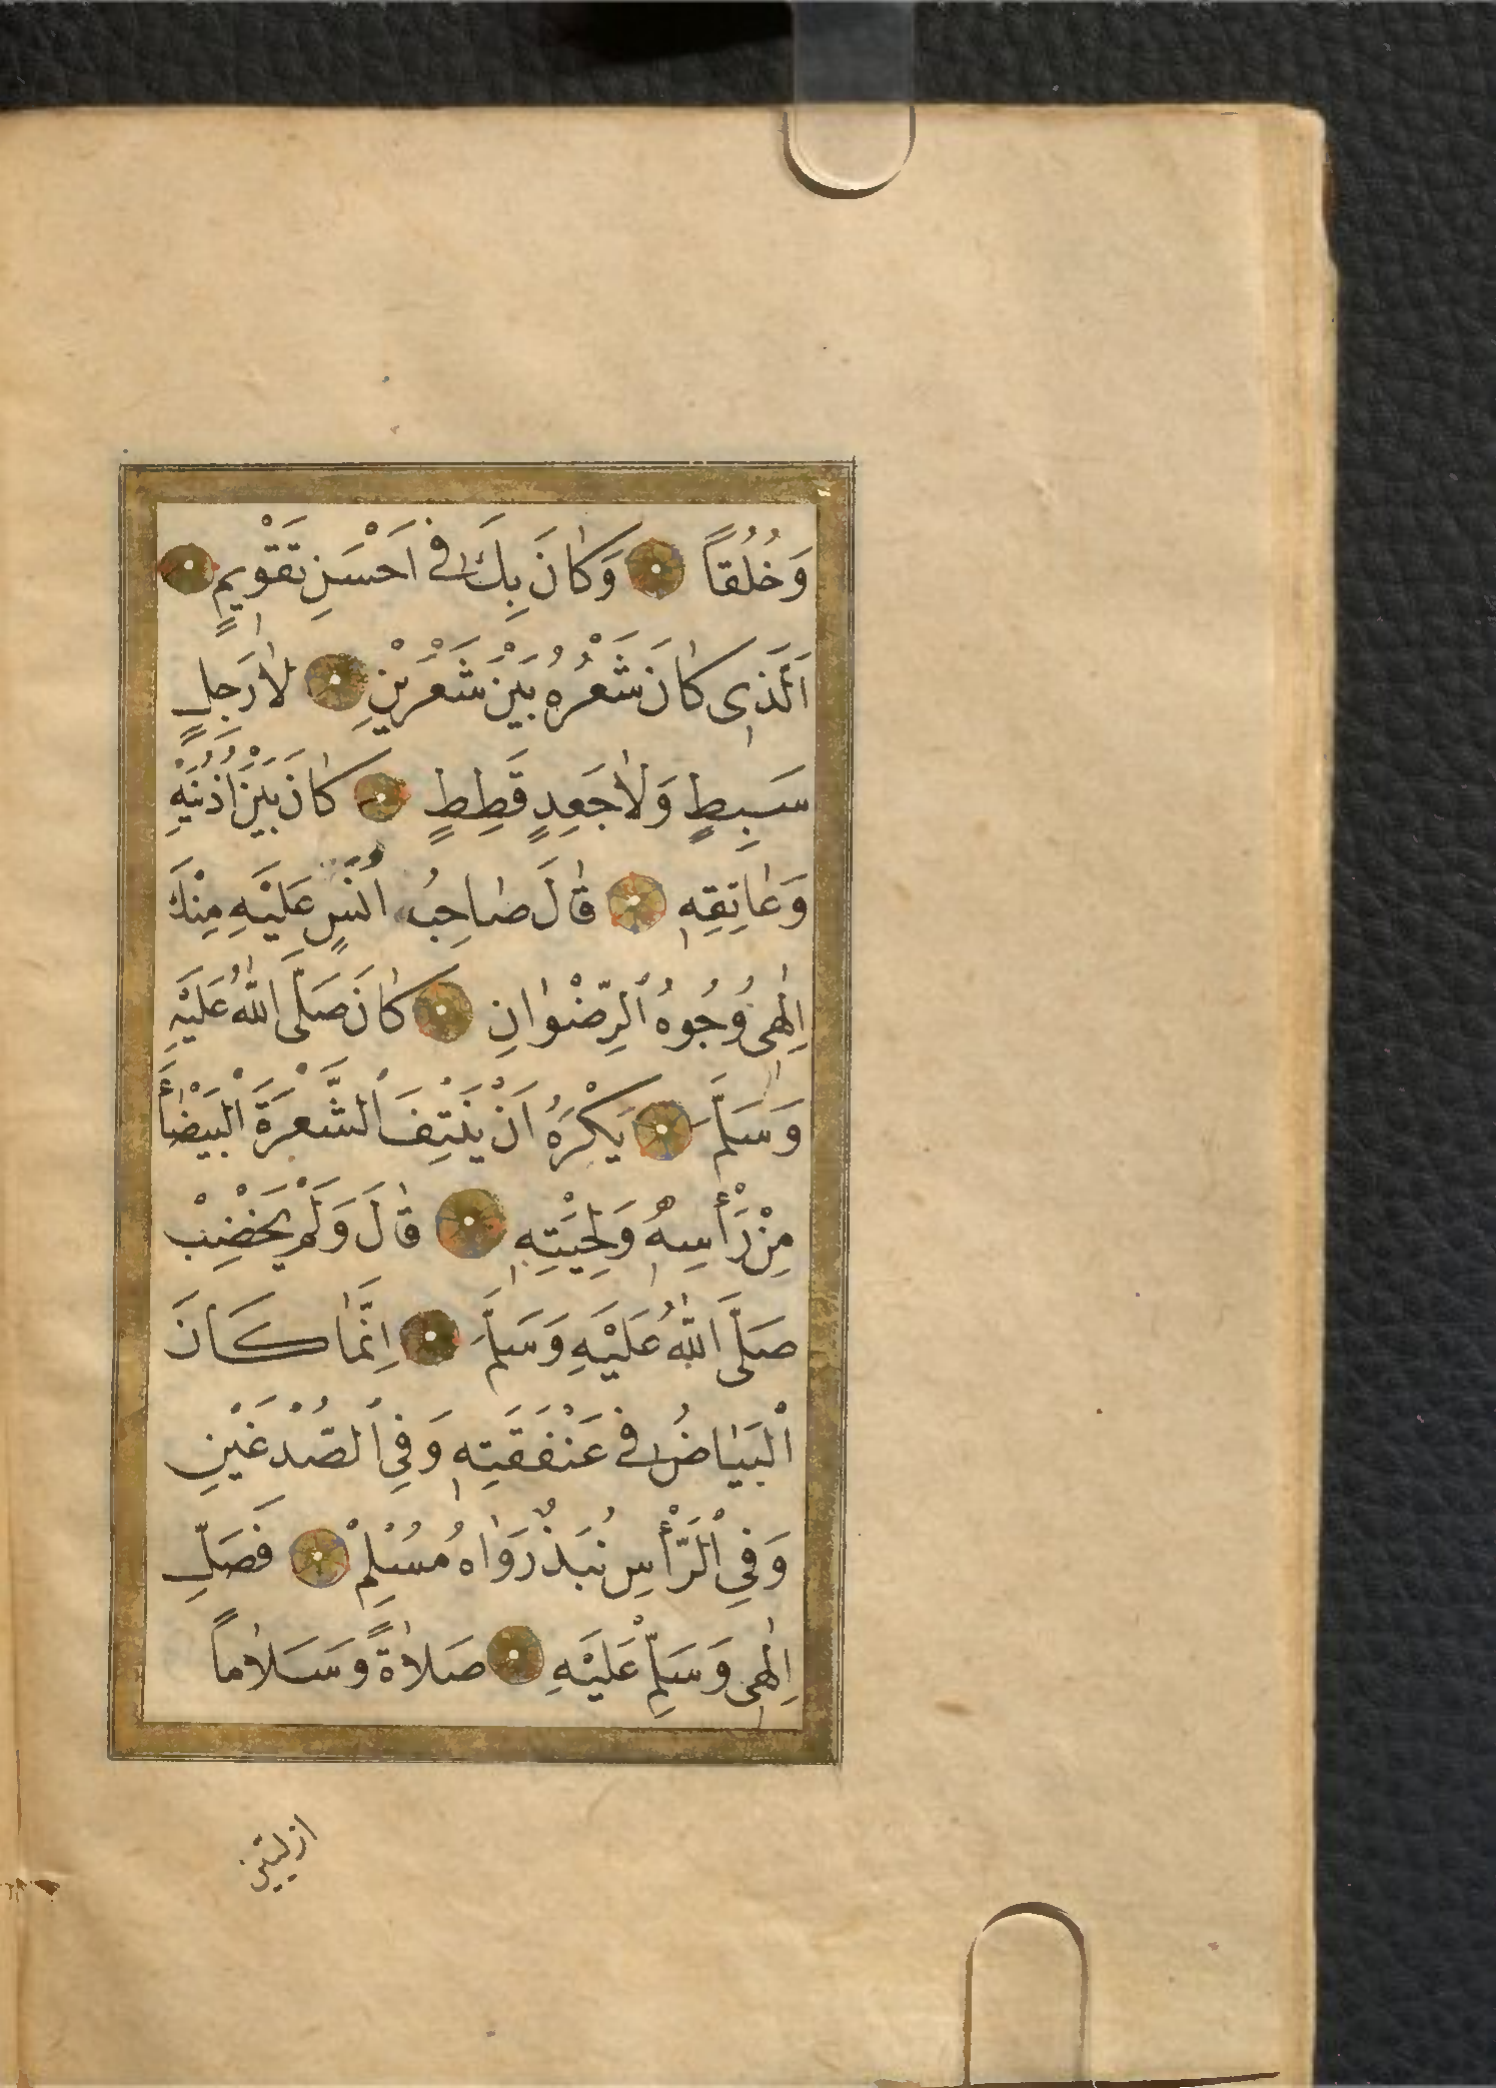 وَخُلُقاً وَكَانَ بِكَ فِى اَحْسَنِ تَقْوِيمٍ
اَلَّذِى كَانَ شَعْرُهُ بَيْنَ شَعْرَيْنِ لَا رَجِلٍ
سَبِطٍ وَلَا جَعِدٍ قَطِطٍ كَانَ بَيْنَ اُذُنَيْهِ
وَعَاتِقِهِ قَالَ صَاحِبُهُ اَنَسٍ عَلَيْهِ مِنْكَ
اِلٰهِى وُجُوهُ الرِّضْوَانِ كَانَ صَلَّى اللّٰهُ عَلَيْهِ
وَسَلَّمَ يَكْرَهُ اَنْ يَنْتِفَ الشَّعْرَةَ الْبَيْضَاءَ
مِنْ رَأْسِهِ وَلِحْيَتِهِ قَالَ وَلَمْ يَخْضِبْ
صَلَّى اللّٰهُ عَلَيْهِ وَسَلَّمَ اِنَّمَا كَانَ
الْبَيَاضُ فِى عَنْفَقَتِهِ وَفِى الصُّدْغَيْنِ
وَفِى الرَّأْسِ نُبَذٌ رَوَاهُ مُسْلِمْ فَصَلِّ
اِلٰهِى وَسَلِّمْ عَلَيْهِ صَلَاةً وَسَلَاماً
ازليتين